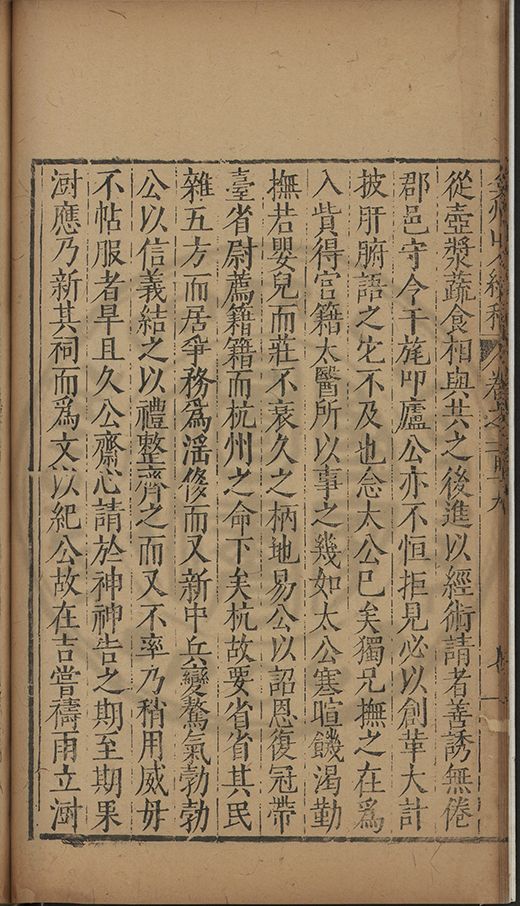 從壺漿蔬食相與共之後進以經術請者善誘無倦
郡邑守令干旄叩廬公亦不恒拒見必以創革大計
披肝腑語之它不及也念太公已矣獨兄撫之在爲
入貲得官籍太醫所以事之幾如太公寒暄饑渴勤
撫若嬰兒而莊不衰久之柄地易公以詔恩復冠帶
臺省尉薦籍籍而杭州之命下矣杭故要省省其民
雜五方而居爭務爲滛侈而又新中兵變驁氣勃勃
公以信義結之以禮整齊之而又不率乃稍用威毋
不帖服者旱且久公齋心請於神神告之期至期果
澍應乃新其祠而爲文以紀公故在吉嘗禱雨立澍